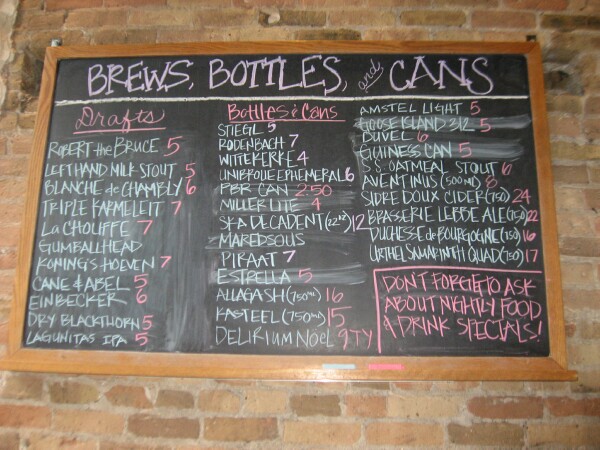 BREWS, BOTTLES, and CANS
Drafts
ROBERT the BRUCE 5
LEFT HAND MILK STOUT 5
BLANCHE de CHAMBLY 6
TRIPLE KARMELEIT 7
La CHOUFFE 7
GUMBALLHEAD
KONING'S HOEVEN 7
CANE & ABEL 5
EINBECKER 6
DRY BLACKTHORN 5
LAGUNITAS IPA 5
Bottles & Cans
STIEGL 5
RODENBACH 7
WITTEKERKE 4
UNIBROUE EPHEMERAL 6
PBR CAN 2.50
MILLER LITE 4
SKA DECADENT (22oz) 12
MAREDSOUS
PIRAAT 7
ESTRELLA 5
ALLAGASH (750ml) 16
KASTEEL (750ml) 15
DELIRIUM NOEL 9
AMSTEL LIGHT 5
GOOSE ISLAND 312 5
DUVEL 6
GUINESS CAN 5
S.S. OATMEAL STOUT 6
AVENTINUS (500ml) 8
SIDRE DOUX CIDER (750) 24
BRASSERIE LEBBE ALE (750) 22
DUCHESSE de BOURGOGNE (750) 16
URTHEL SAMARANTH QUAD (750) 17
DON'T FORGET TO ASK
ABOUT NIGHTLY FOOD
& DRINK SPECIALS!